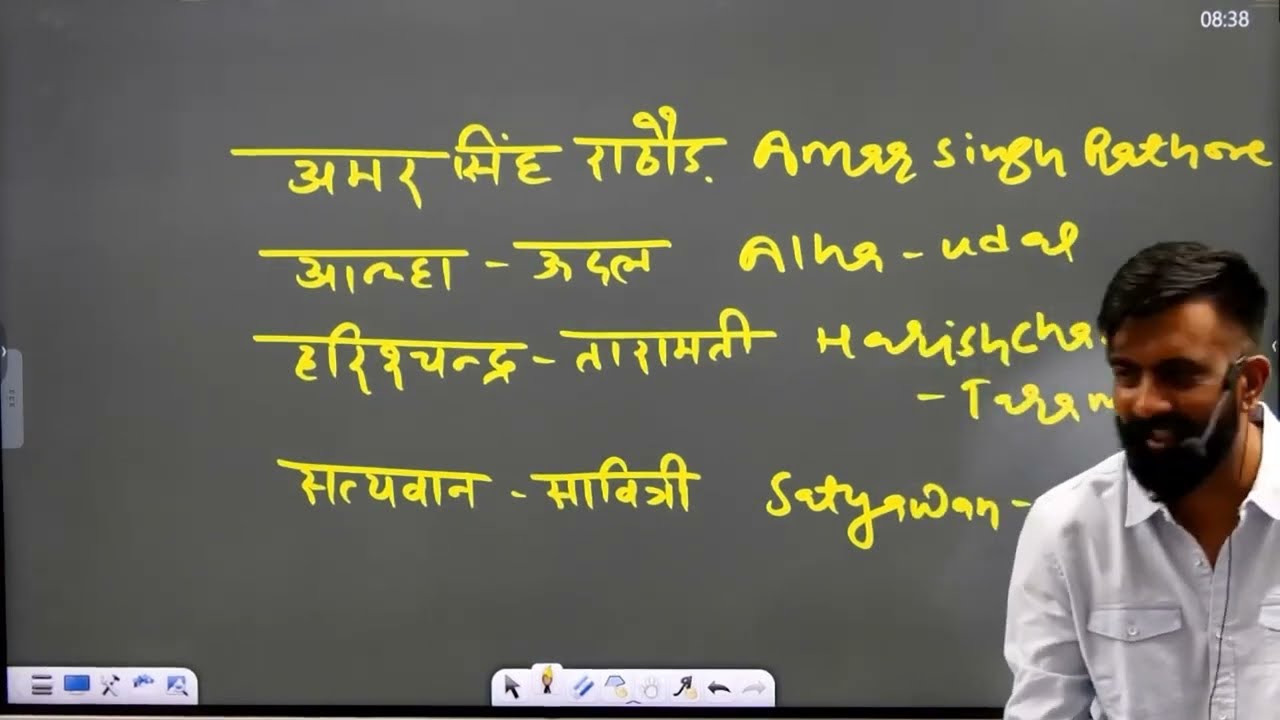 08:38
अमर सिंह राठौड़ Amar singh Rathore
आल्हा - ऊदल Alha - udal
हरिश्चन्द्र - तारामती Harishcha
- Taram
सत्यवान - सावित्री Satyawan -